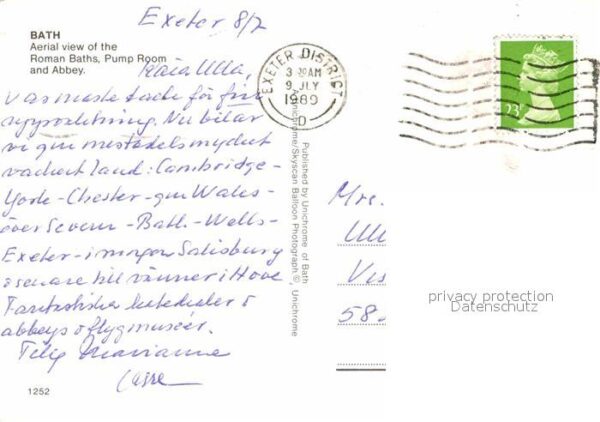 BATH
Aerial view of the
Roman Baths, Pump Room
and Abbey.
Exeter 8/7
Kära Ulla,
Vi måste tacka för fin
uppvaktning. Nu bilar
vi genom mestadels mycket
vackert land: Cambridge-
York - Chester - gm Wales -
över Severn - Bath - Wells -
Exeter - i morgon Salisbury
o senare till vänner i Hove
Fantastiska katedraler o
abbeys o flygmuséer.
Marianne
Lasse
1252
EXETER DISTRICT
3 30 AM
9 JLY
1989
D
23P
Published by Unichrome of Bath
Unichrome/Skyscan Balloon Photograph © Unichrome
Mrs.
58
privacy protection
Datenschutz